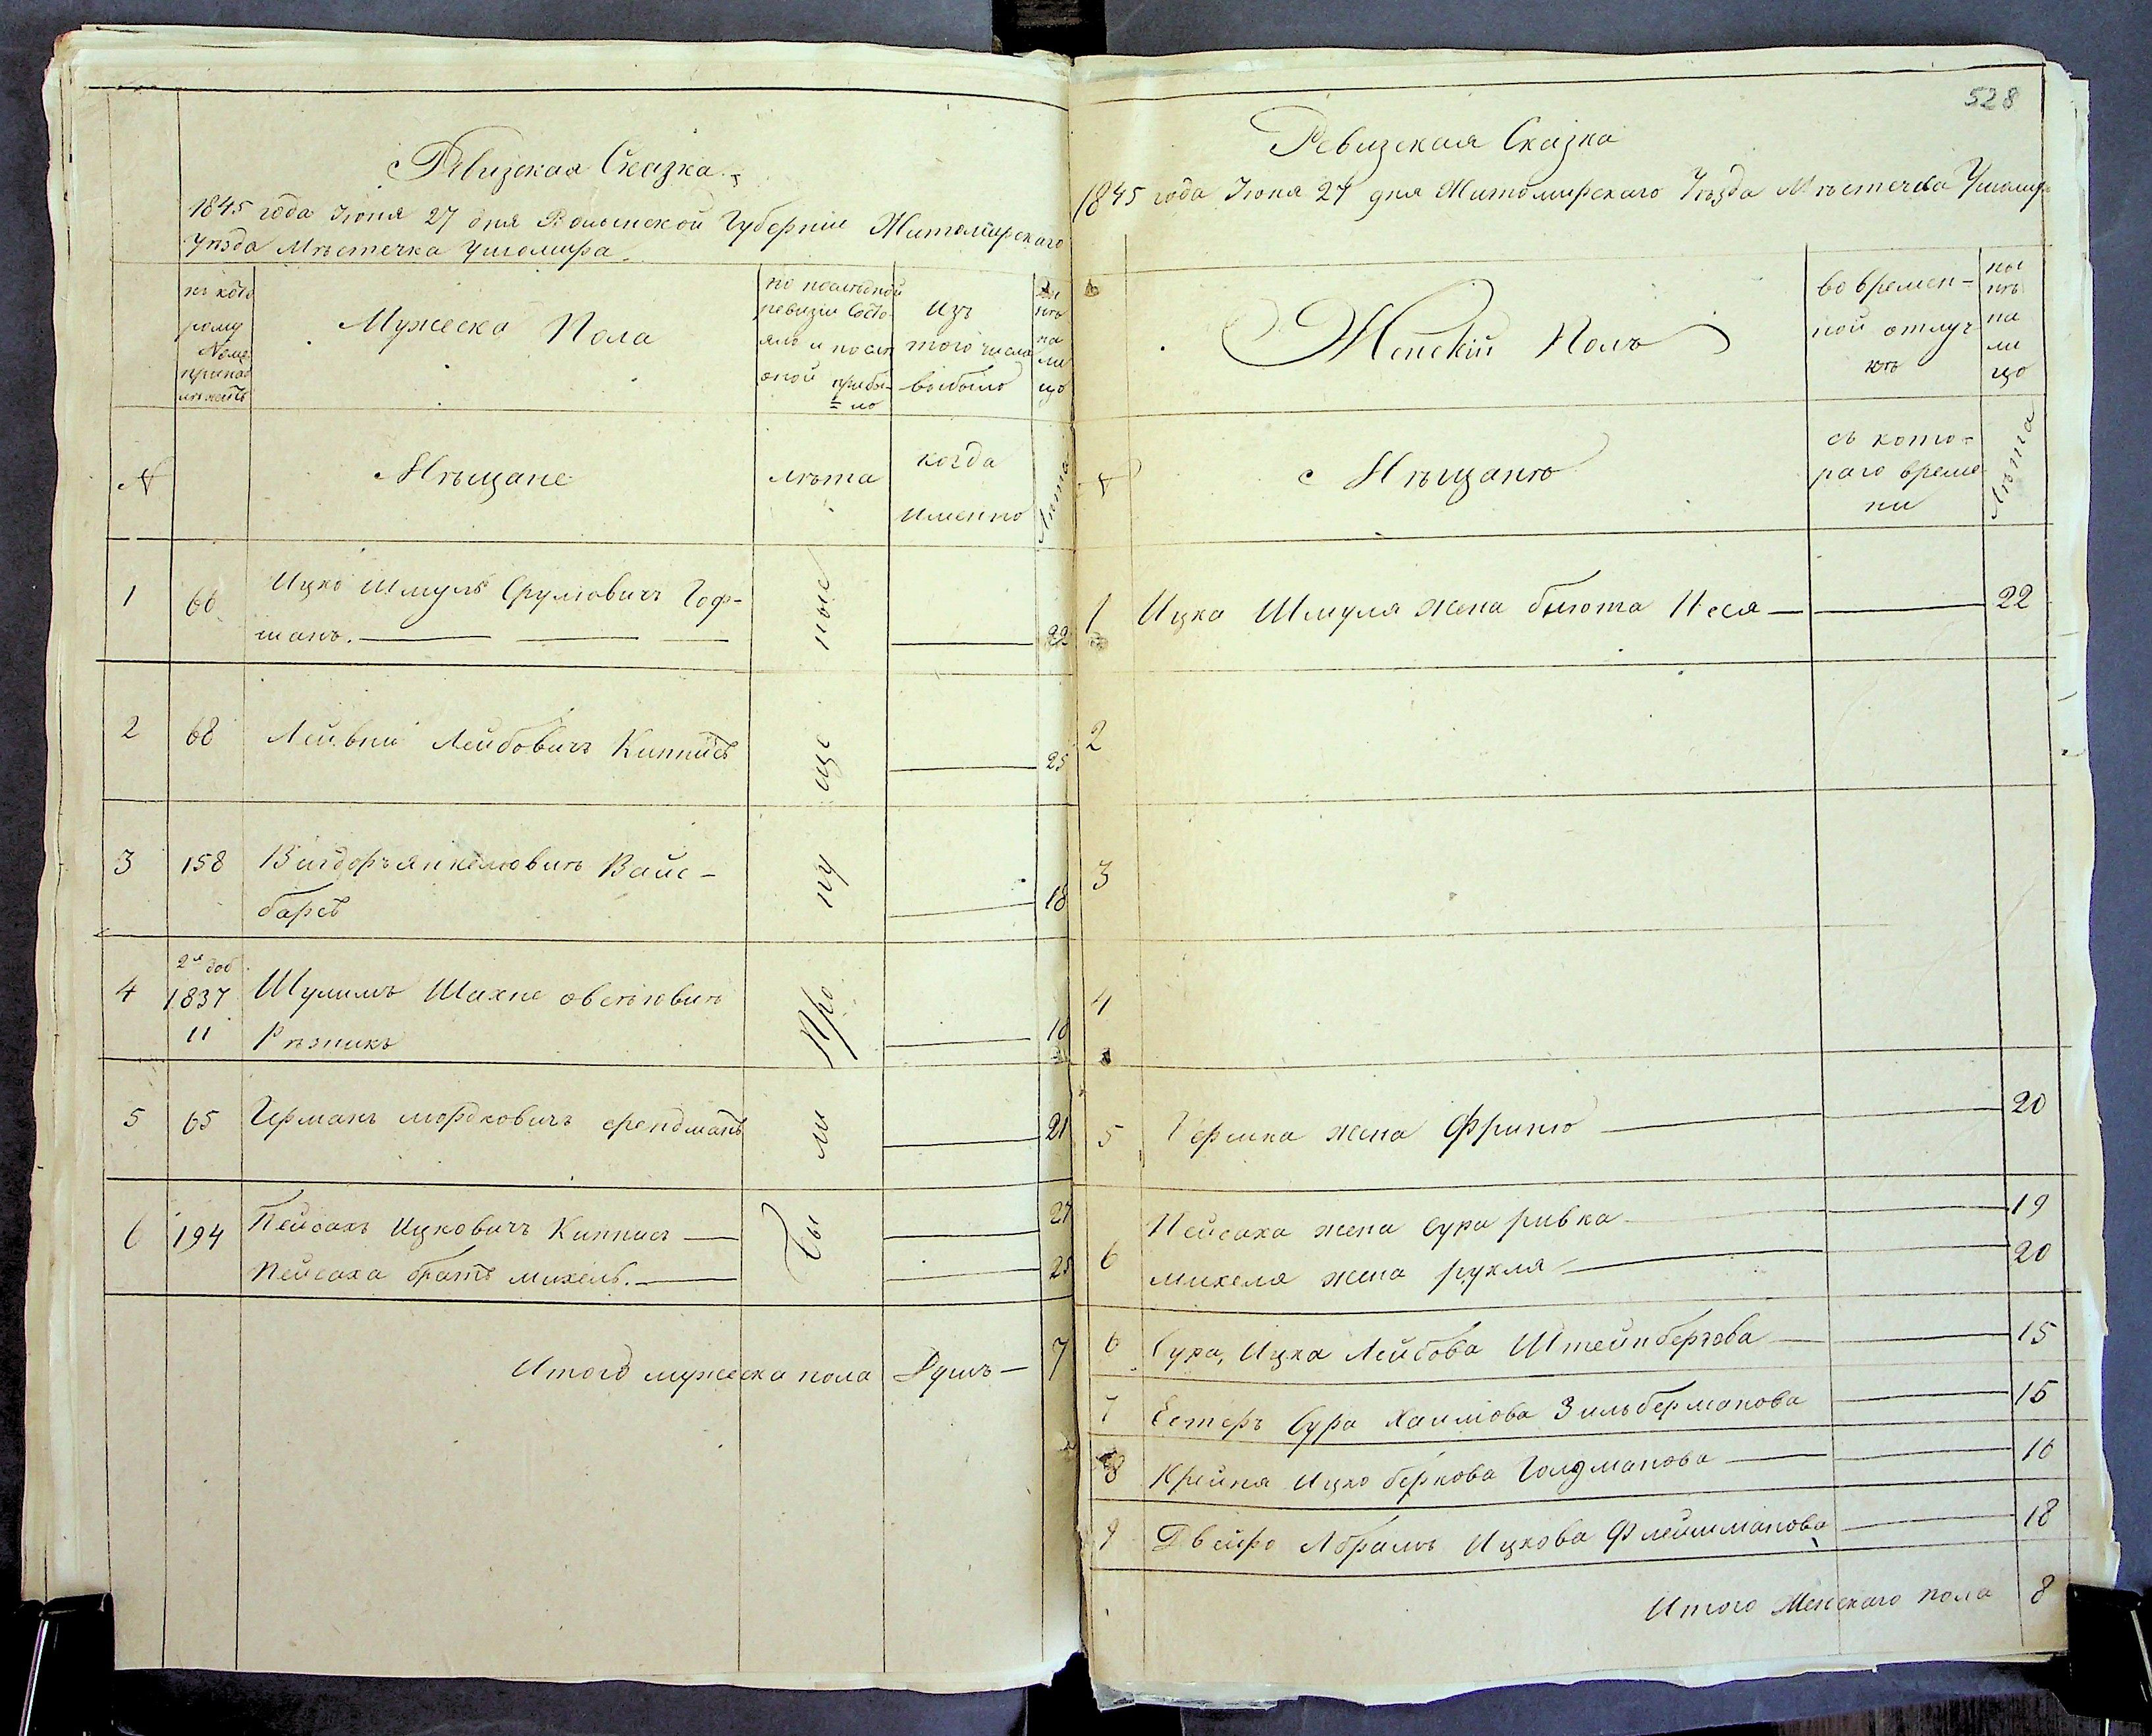 Ревизская Сказка
1845 года Июня 27 дня Волынской Губернии Житомирскаго
Уѣзда Мѣстечка Ушомира.
къ кото
рому
Номе
принад
лежитъ
Мужеска Пола
по последной
ревизіи Состо-
яло и после
оной прибы-
ло
Изъ
того числа
выбыло
ны
нѣ
на
ли
цо
№
Мѣщане
лѣта
когда
именно
Лѣта
1 66 Ицко Шмуль Срулювичъ Гоф-
манъ. 22
2 68 Лейвни Лейбовичъ Кипнисъ 25
3 158 Вигдоръ Янкелювичъ Вайс-
барсъ 18
2я доб
4 1837 Шулимъ Шахне Овсѣювичъ
11 Рѣзникъ 18
5 65 Германъ Мордковичъ Срендманъ 21
6 194 Пейсахъ Ицковичъ Кипнисъ 27
Пейсаха братъ Михель. 25
Были Пропущенные
Итого мужеска пола Душъ 7
528
Ревизская Сказка
1845 года Июня 27 дня Житомирскаго Уѣзда Мѣстечка Ушомир
№
Женскій Полъ
во времен-
ной отлуч
кѣ
ны
нѣ
на
ли
цо
Мѣщанѣ
съ кото-
раго време
ни
Лѣта
1 Ицка Шмуля жена Бнюта Неся 22
2
3
4
5 Гершка жена Фриню 20
Пейсаха жена Сура ривка 19
6 Михеля жена рухля 20
6 Сура, Ицка Лейбова Штейнбергова 15
7 Естеръ Сура Хаимова Зильберманова 15
8 Крейня Ицко Беркова Голдманова 16
9 Двейро Абрамъ Ицкова Флейшманова 18
Итого Женскаго пола 8